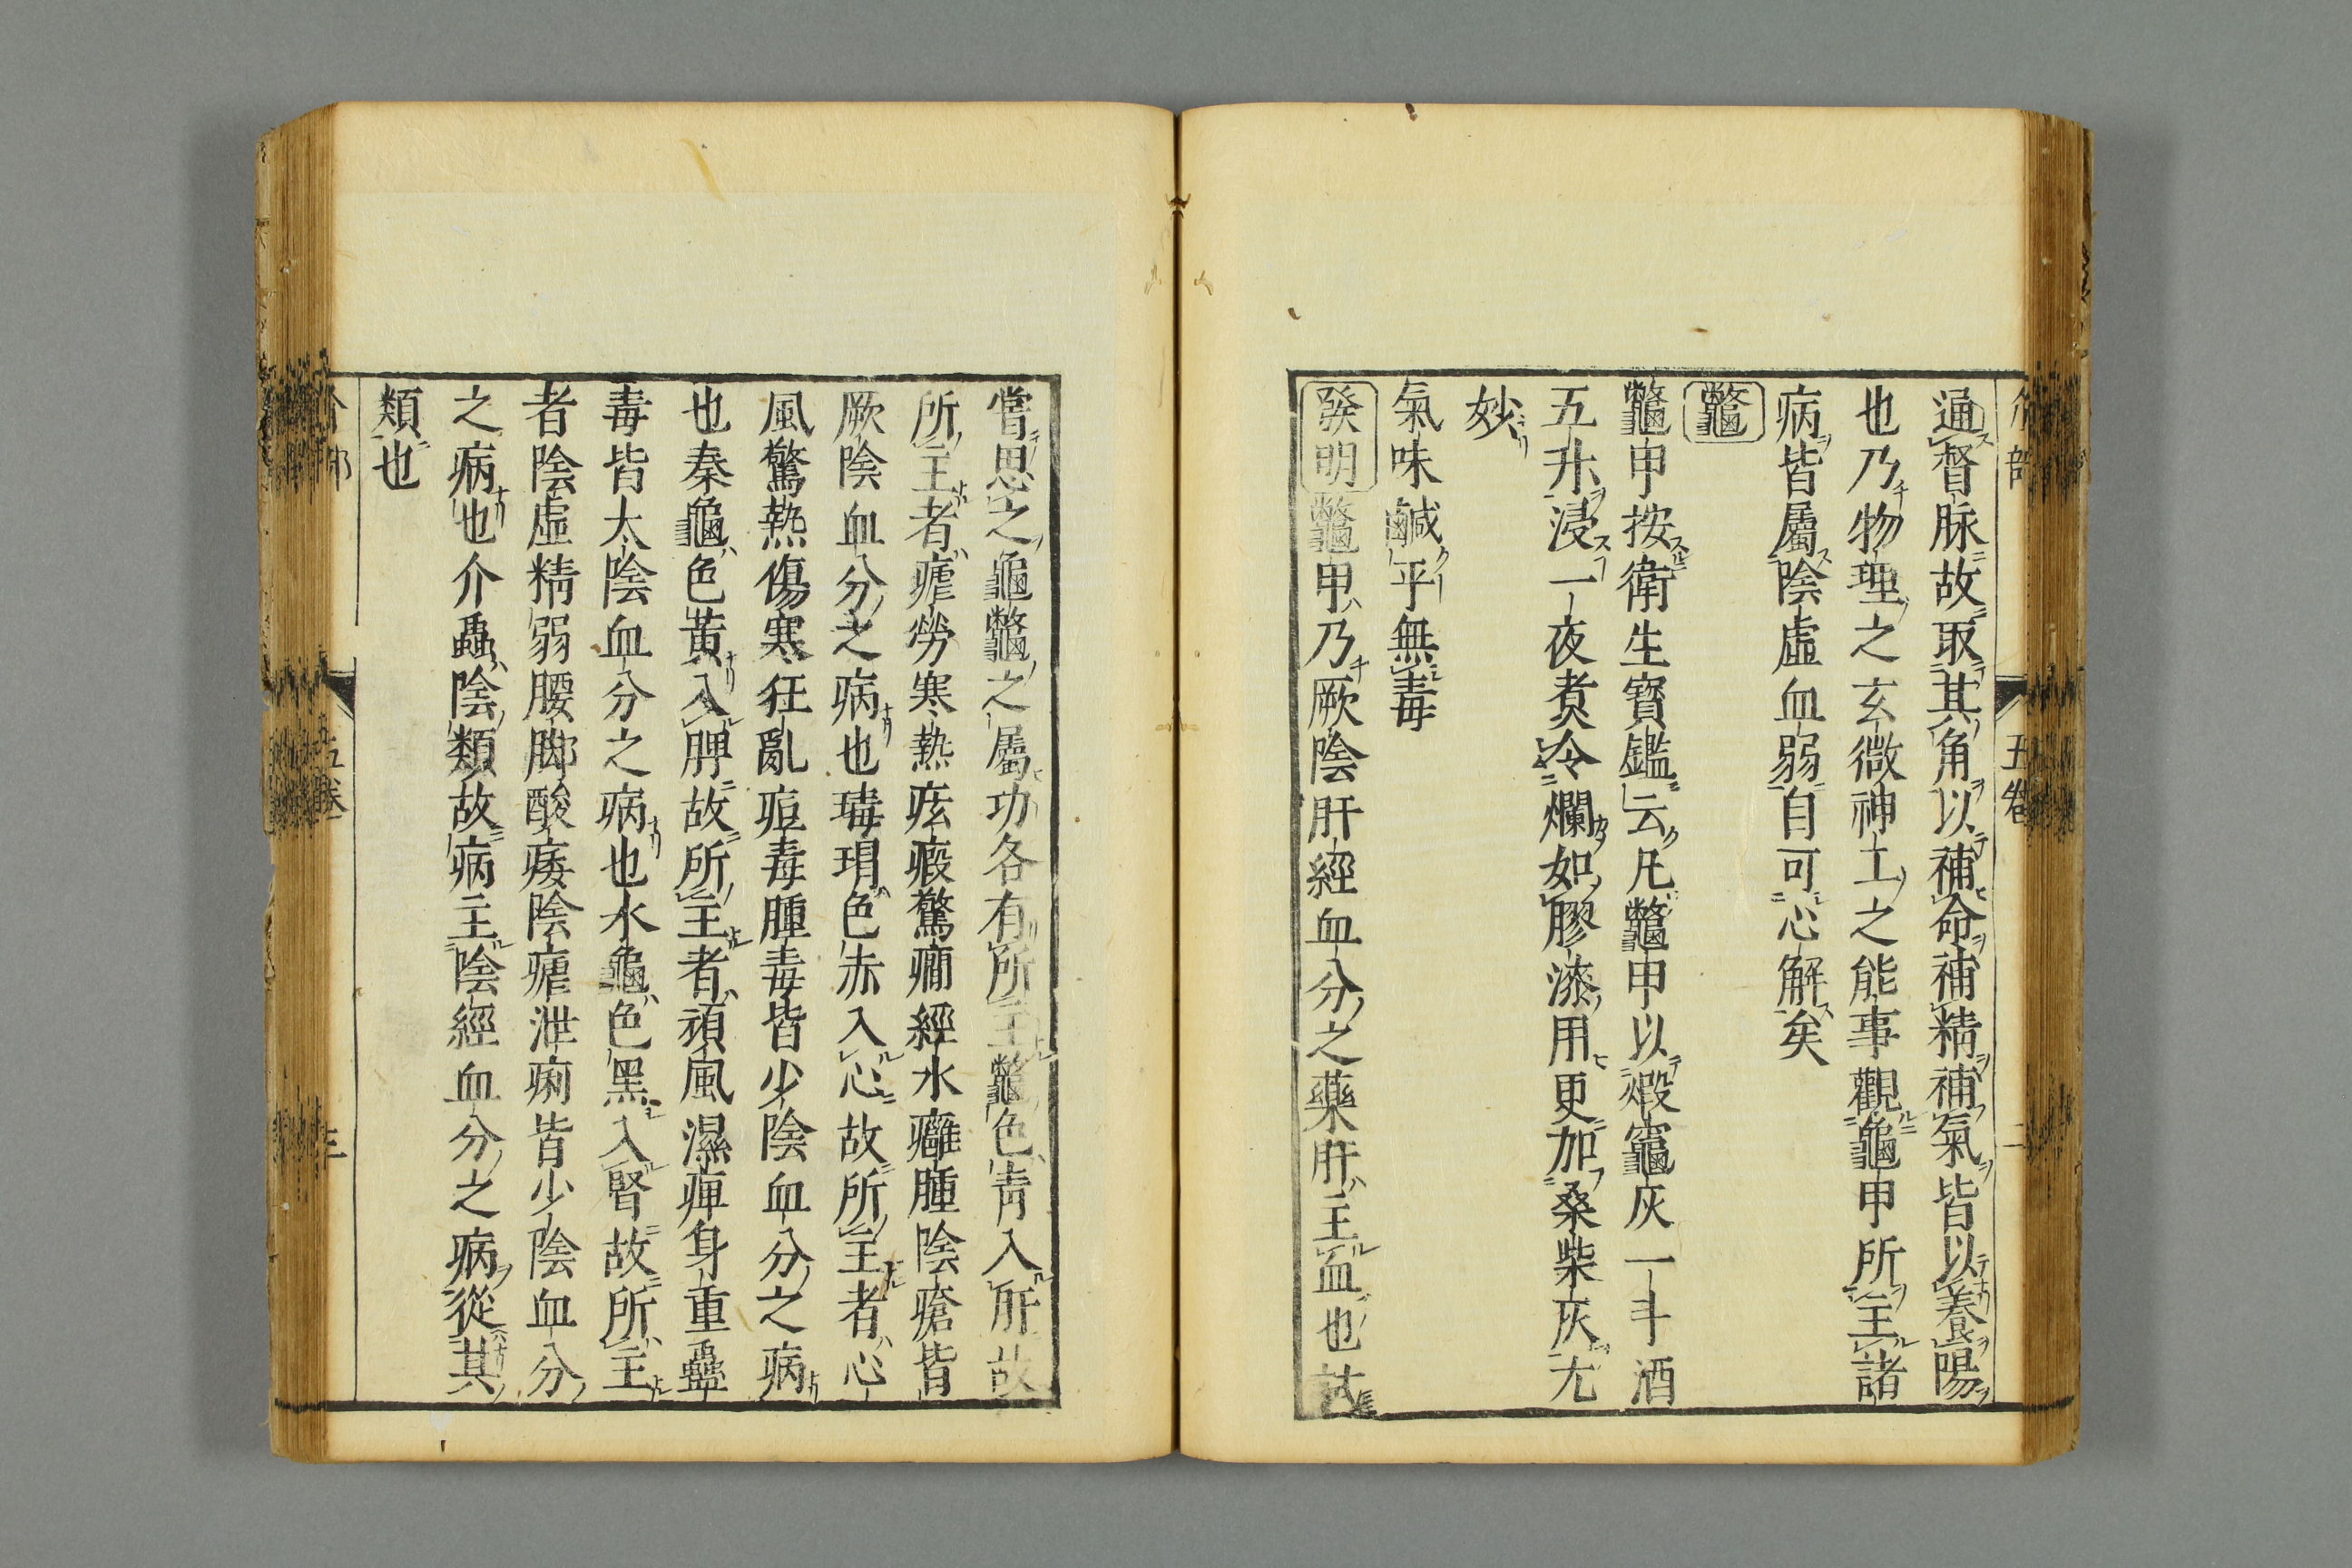 通督脉故取其角以補命補精補氣皆以養陽
也乃物理之玄微神工之能事觀龜甲所主諸
病皆屬陰虛血弱自可心解矣
鼈
鼈甲按衛生寶鑑云凡鼈甲以煅竈灰一斗酒
五升浸一夜煑令爛如膠漆用更加桒柴灰尤
妙
氣味鹹平無毒
發明鼈甲乃厥陰肝經血分之藥肝主血也試
嘗思之龜鼈之屬功各有所主鼈色青入肝故
所主者瘧勞寒熱痃瘕驚癎經水癰腫陰瘡皆
厥陰血分之病也瑇瑁色赤入心故所主者心
風驚熱傷寒狂亂痘毒腫毒皆少陰血分之病
也秦龜色黃入脾故所主者頑風濕痺身重蠱
毒皆太陰血分之病也水龜色黑入腎故所主
者陰虛精弱腰脚酸痿陰瘧泄痢皆少陰血分
之病也介蟲陰類故病主陰經血分之病從其
類也
五卷
三